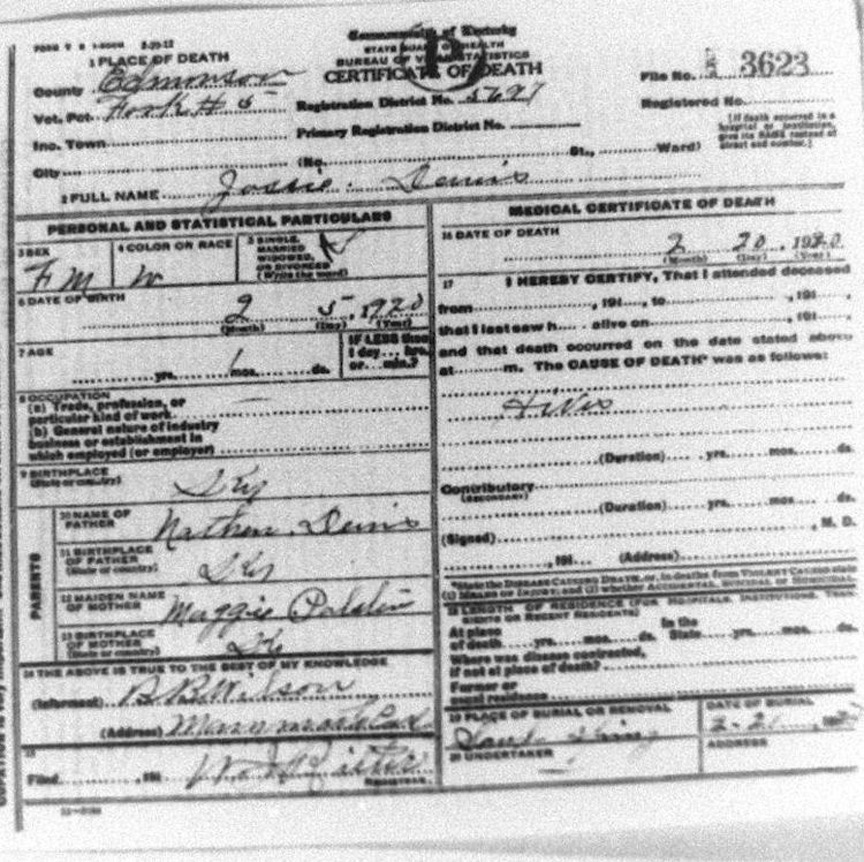 Commonwealth of Kentucky
STATE BOARD OF HEALTH
BUREAU OF VITAL STATISTICS
CERTIFICATE OF DEATH
1 PLACE OF DEATH
County Edmonson
Vot. Pct. Fork # 5
Ino. Town
City
Registration District No. 5697
Primary Registration District No.
(No. St., Ward)
File No. 3623
Registered No.
[If death occurred in a
hospital or institution,
give its NAME instead of
street and number.]
2 FULL NAME Jossie Denis
PERSONAL AND STATISTICAL PARTICULARS
3 SEX
F M
4 COLOR OR RACE
W
5 SINGLE,
MARRIED
WIDOWED,
OR DIVORCED
(Write the word)
S
6 DATE OF BIRTH
2 5, 1920
(Month) (Day) (Year)
7 AGE
yrs. mos. ds.
IF LESS than
1 day hrs.
or min.?
8 OCCUPATION
(a) Trade, profession, or
particular kind of work
(b) General nature of industry
business or establishment in
which employed (or employer)
9 BIRTHPLACE
(State or country)
Ky
PARENTS
10 NAME OF
FATHER
Nathen Denis
11 BIRTHPLACE
OF FATHER
(State or country)
Ky
12 MAIDEN NAME
OF MOTHER
Maggie
13 BIRTHPLACE
OF MOTHER
(State or country)
14 THE ABOVE IS TRUE TO THE BEST OF MY KNOWLEDGE
(Informant) B B Wilson
(Address) Mammoth Cave
15
Filed, 191
REGISTRAR.
MEDICAL CERTIFICATE OF DEATH
16 DATE OF DEATH
2 20, 1920
(Month) (Day) (Year)
17 I HEREBY CERTIFY, That I attended deceased
from, 191, to, 191,
that I last saw h alive on, 191,
and that death occurred on the date stated above
at m. The CAUSE OF DEATH* was as follows:
Hives
(Duration) yrs. mos. ds.
Contributory
(SECONDARY)
(Duration) yrs. mos. ds.
(Signed), M. D.
, 191 (Address)
*State the DISEASE CAUSING DEATH, or, in deaths from VIOLENT CAUSES state
(1) MEANS OF INJURY; and (2) whether ACCIDENTAL, SUICIDAL or HOMICIDAL.
18 LENGTH OF RESIDENCE (FOR HOSPITALS, INSTITUTIONS, TRANSIENTS OR RECENT RESIDENTS)
At place In the
of death yrs. mos. ds. State yrs. mos. ds.
Where was disease contracted,
if not at place of death?
Former or
usual residence
19 PLACE OF BURIAL OR REMOVAL
DATE OF BURIAL
2-21
20 UNDERTAKER
ADDRESS